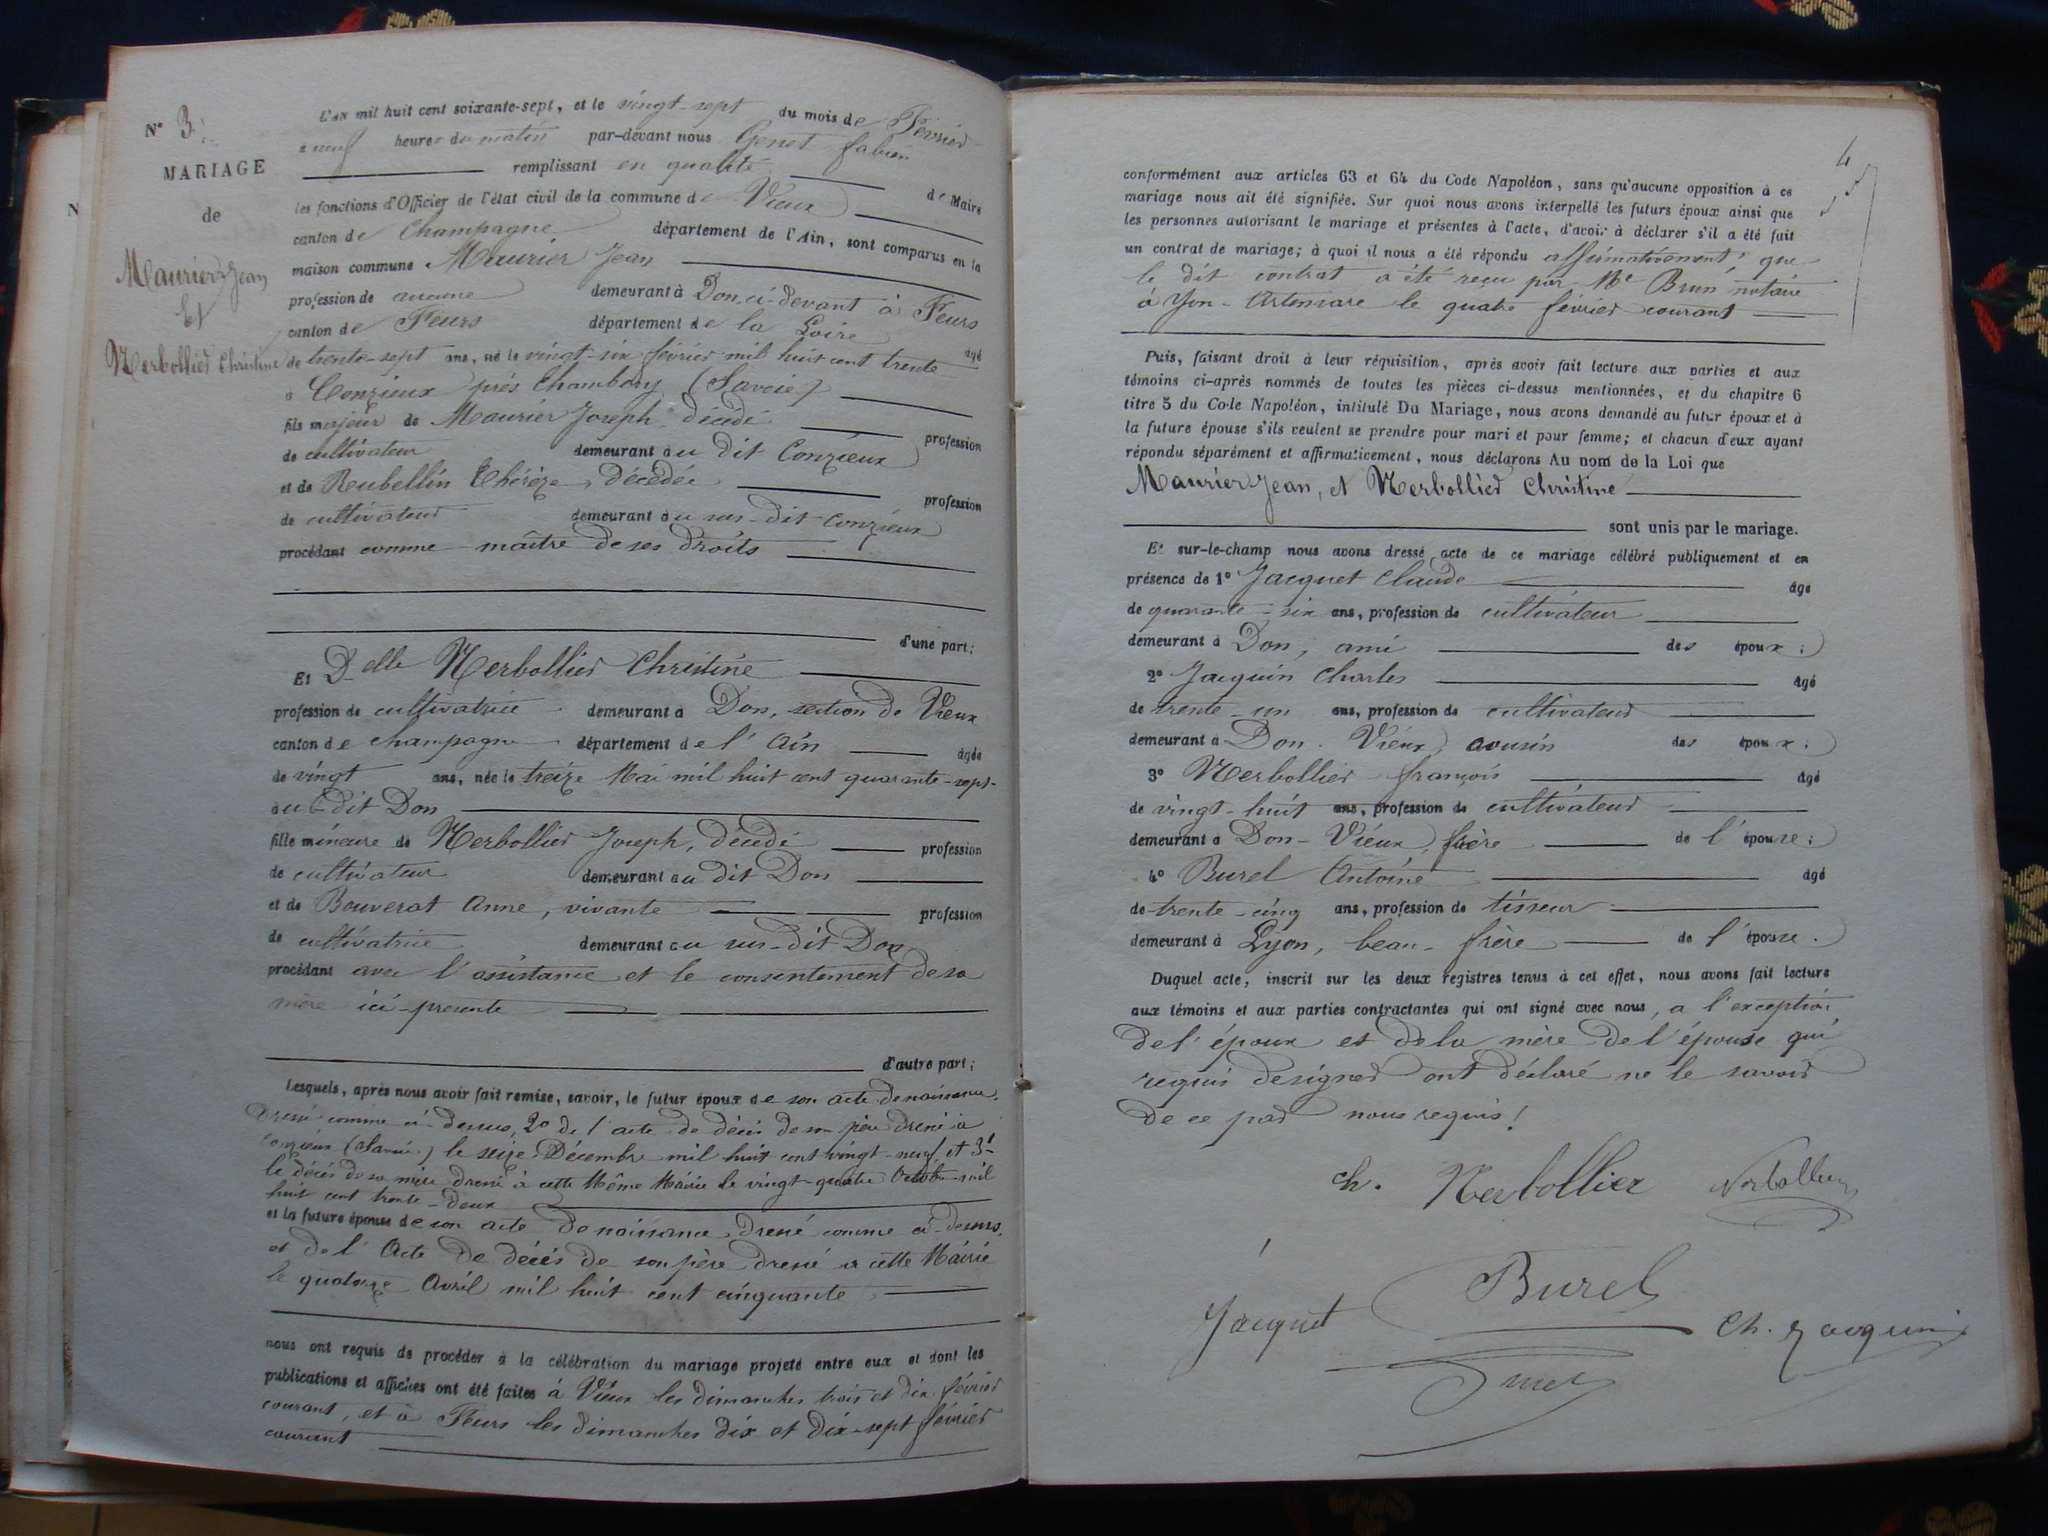 N° 3.
MARIAGE
de
Maurier Jean
Et
Nerbollier Christine
L'AN mil huit cent soixante-sept, et le vingt-sept du mois de Février
à neuf heures du matin par-devant nous Genet fabien
remplissant en qualité de Maire
les fonctions d'Officier de l'état civil de la commune de Vieux
canton de Champagne département de l'Ain, sont comparus en la
maison commune Maurier Jean
profession de aucune demeurant à Don, ci-devant à Feurs
canton de Feurs département de la Loire âgé
de trente-sept ans, né le vingt-six février mil huit cent trente
à Conzieux près Chambéry (Savoie)
fils majeur de Maurier Joseph, décédé profession
de cultivateur demeurant au dit Conzieux
et de Rubellin Thérèze, décédée profession
de cultivateur demeurant au sus-dit Conzieux
procédant comme maître de ses droits
d'une part;
Et Delle Nerbollier Christine
profession de cultivatrice demeurant à Don, section de Vieux
canton de champagne département de l'Ain âgée
de vingt ans, née le treize Mai mil huit cent quarante-sept
au dit Don
fille mineure de Nerbollier Joseph, décédé profession
de cultivateur demeurant au dit Don
et de Bouverat Anne, vivante profession
de cultivatrice demeurant au sus-dit Don
procédant avec l'assistance et le consentement de sa
mère ici-presente
d'autre part;
Lesquels, après nous avoir fait remise, savoir, le futur époux de son acte de naissance,
Dressé comme ci-dessus, 2° de l'acte de décès de son père dressé à
Conzieux (Savoie) le seize Décembre mil huit cent vingt-neuf, et 3°
le décès de sa mère dressé à cette Même Mairie le vingt-quatre Octobre mil
huit cent trente-deux
et la future épouse de son acte de naissance dressé comme ci-dessus,
et de l'Acte de décès de son père dressé à cette Mairie
le quatorze Avril mil huit cent cinquante
nous ont requis de procéder à la célébration du mariage projeté entre eux et dont les
publications et affiches ont été faites à Vieux les dimanches trois et dix février
courant, et à Feurs les dimanches dix et dix-sept février
courant
4
conformément aux articles 63 et 64 du Code Napoléon, sans qu'aucune opposition à ce
mariage nous ait été signifiée. Sur quoi nous avons interpellé les futurs époux ainsi que
les personnes autorisant le mariage et présentes à l'acte, d'avoir à déclarer s'il a été fait
un contrat de mariage; à quoi il nous a été répondu affirmativement, que
le dit contrat a été reçu par Me Brun notaire
à Yon-Artemare le quatre février courant
Puis, faisant droit à leur réquisition, après avoir fait lecture aux parties et aux
témoins ci-après nommés de toutes les pièces ci-dessus mentionnées, et du chapitre 6
titre 5 du Code Napoléon, intitulé Du Mariage, nous avons demandé au futur époux et à
la future épouse s'ils veulent se prendre pour mari et pour femme; et chacun d'eux ayant
répondu séparément et affirmativement, nous déclarons Au nom de la Loi que
Maurier Jean, et Nerbollier Christine
sont unis par le mariage.
Et sur-le-champ nous avons dressé acte de ce mariage célébré publiquement et en
présence de 1° Jacquet Claude âgé
de quarante-six ans, profession de cultivateur
demeurant à Don, ami des époux;
2° Jacquin Charles âgé
de trente-un ans, profession de cultivateur
demeurant à Don. Vieux, cousin des époux;
3° Nerbollier françois âgé
de vingt-huit ans, profession de cultivateur
demeurant à Don-Vieux, frère de l'épouse;
4° Burel Antoine âgé
de trente-cinq ans, profession de tisseur
demeurant à Lyon, beau-frère de l'épouse.
Duquel acte, inscrit sur les deux registres tenus à cet effet, nous avons fait lecture
aux témoins et aux parties contractantes qui ont signé avec nous, à l'exception
de l'époux et de la mère de l'épouse qui
requis de signer ont déclaré ne le savoir
de ce par nous requis!
Ch. Nerbollier Nerbollier
Burel
Jacquet Ch. Jacquin